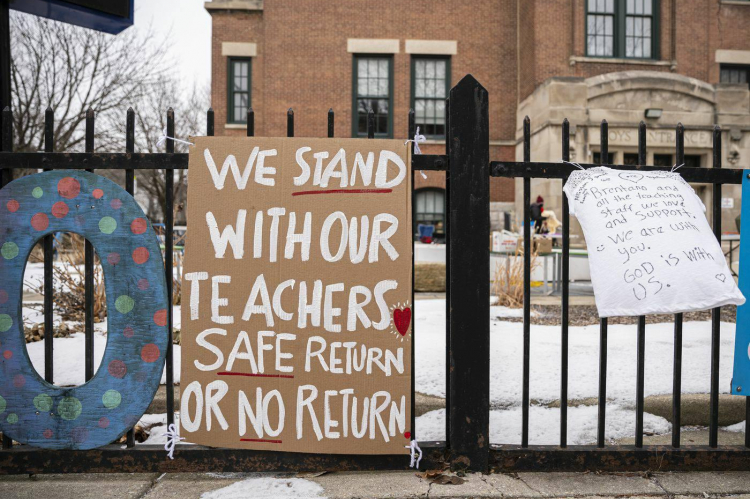 BOYS ENTRANCE
O
WE STAND
WITH OUR
TEACHERS
SAFE RETURN
OR NO RETURN
Brentano and
all the teaching
staff we love
and support.
We are with
you.
GOD is with
US.